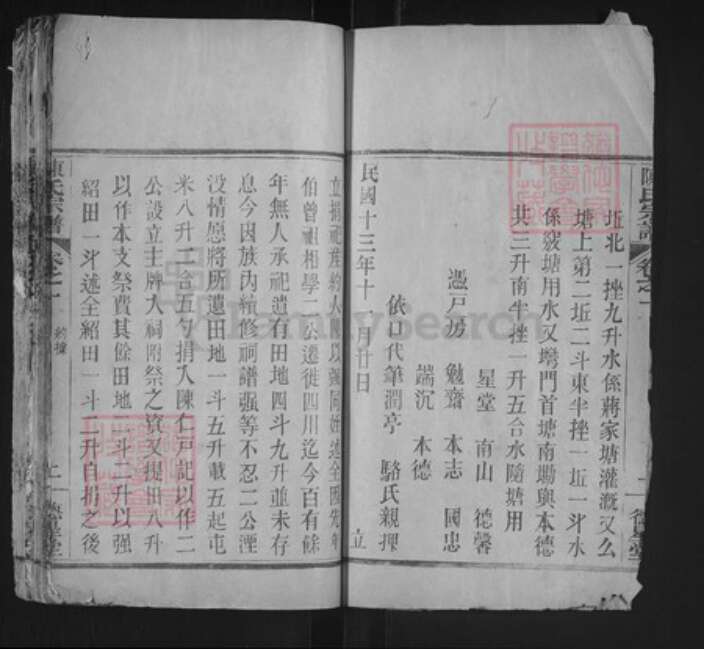 坵北一挫九升水係蔣家塘灌溉又么
塘上第二坵二斗東半挫一坵一斗水
係簸塘用水又塆門首塘南塝與本德
共三升南半挫一升五合水隨塘用
星堂 南山 德馨
憑戸房 勉齋 本志 國忠
端沉 本德
依口代筆潤亭 駱氏親押
民國十三年十一月廿日 立
立捐祀産約人
伯曾祖相學二公遷徙四川迄今百有餘
年無人承祀遺有田地四斗九升並未存
息今因族內續修祠譜强等不忍二公湮
没情愿將所遺田地一斗五升載五起屯
米八升二合五勺捐入陳仁戸記以作二
公設立主牌入祠附祭之資又提田八升
以作本支祭費其餘田地二斗二升以强
紹田一斗述全紹田一斗二升自捐之後
陳氏宗譜 卷之一 約據
陳氏宗譜
FamilySearch